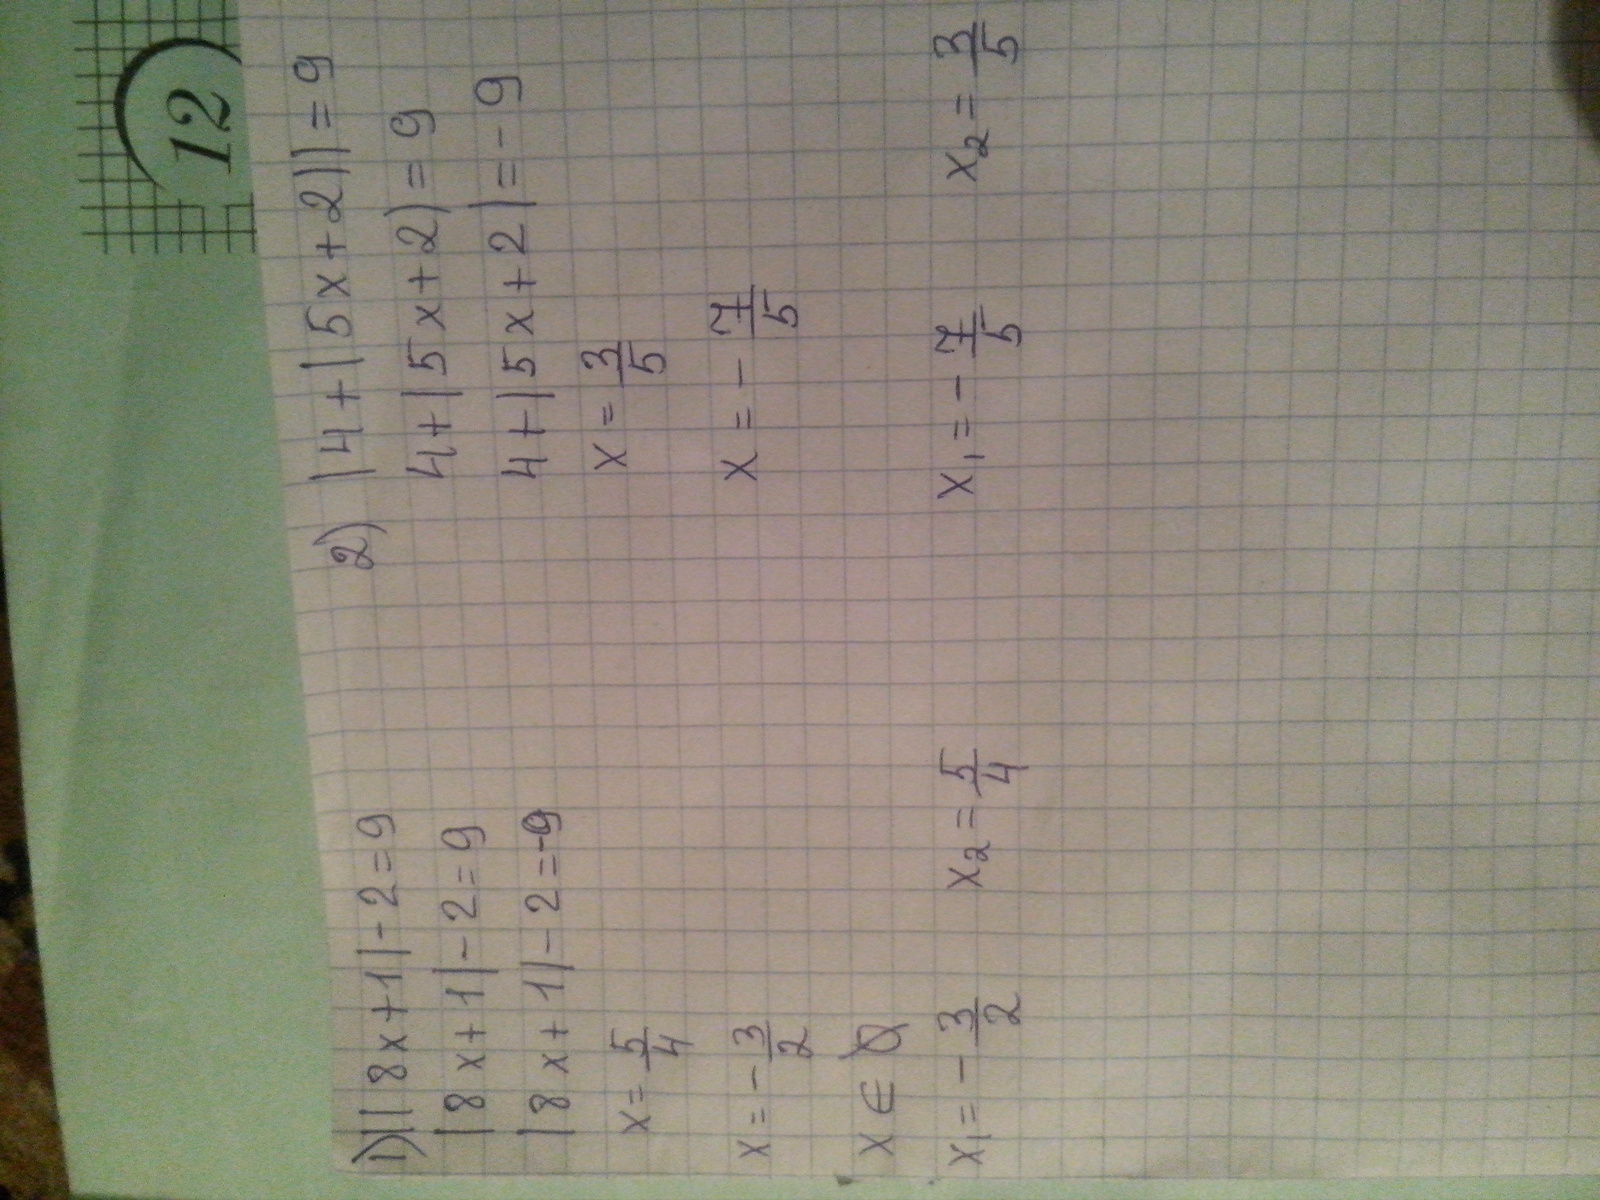 12
1) | 8x+1|-2=9
|8x+1|-2=9
|8x+1|-2=-9
x=5/4
x=-3/2
x∈∅
x₁=-3/2 x₂=5/4
2) |4+|5x+2||=9
4+|5x+2)=9
4+|5x+2|=-9
x=3/5
x=-7/5
x₁=-7/5 x₂=3/5